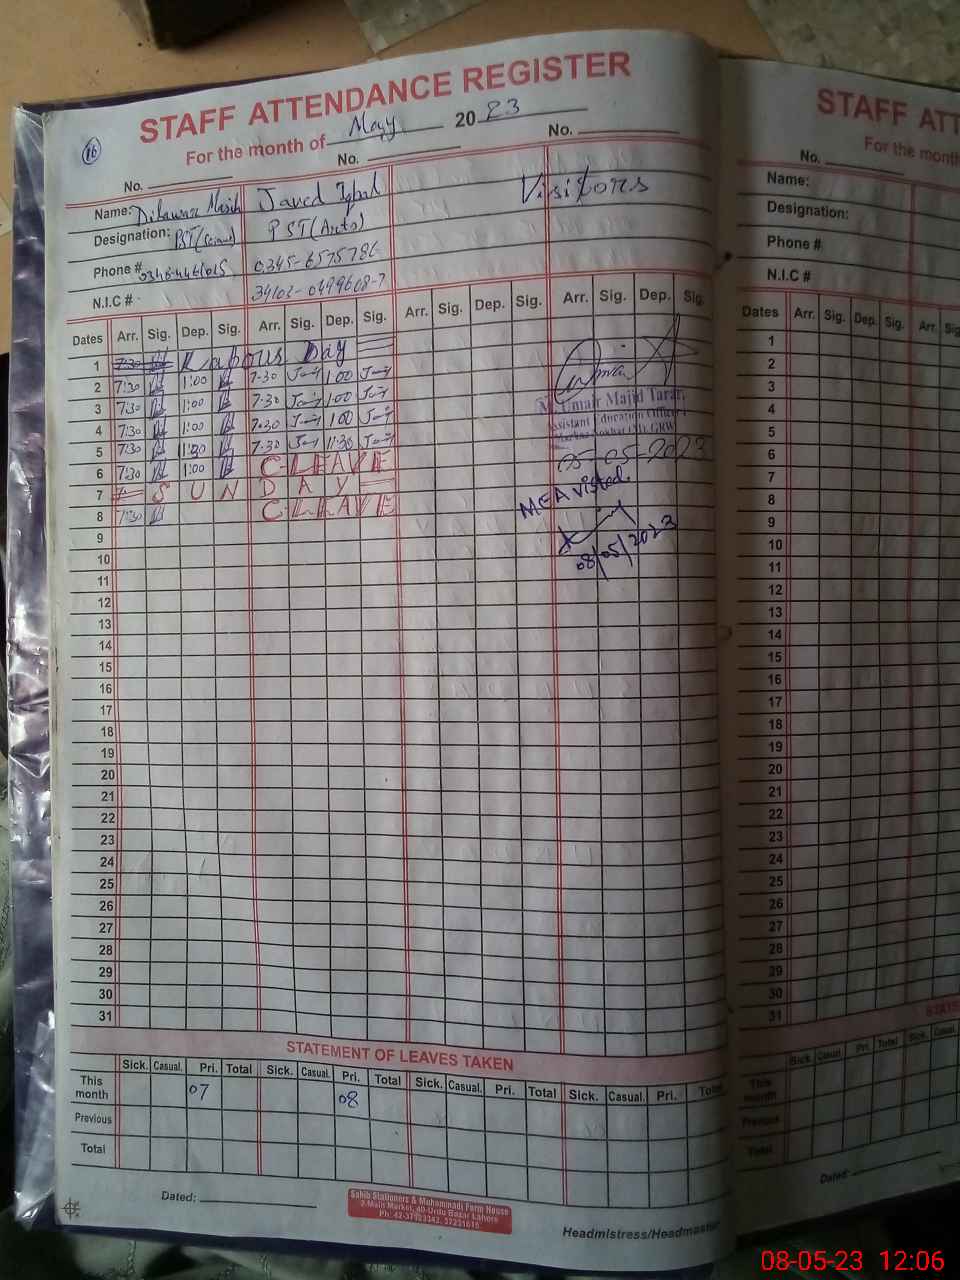 STAFF ATTENDANCE REGISTER
16
For the month of May 2023
No. No. No.
Name: Dilawar Masih Javed Iqbal Visitors
Designation: PST (Science) PST (Arts)
Phone # 0345-6575786
N.I.C #
Dates Arr. Sig. Dep. Sig. Arr. Sig. Dep. Sig. Arr. Sig. Dep. Sig. Arr. Sig. Dep. Sig.
1 7:30 Labour Day
2 7:30 1:00 7-30 1:00
3 7:30 1:00 7-30 1:00
4 7:30 1:00 7-30 1:00
5 7:30 11:30 7-30 11:30
6 7:30 1:00 C-LEAVE
7 SUNDAY
8 7:30 C-LEAVE
M. Umair Majid Tarar
Assistant Education Officer
05-05-2023
MEA visited.
08/05/2023
9
10
11
12
13
14
15
16
17
18
19
20
21
22
23
24
25
26
27
28
29
30
31
STATEMENT OF LEAVES TAKEN
Sick. Casual. Pri. Total Sick. Casual. Pri. Total Sick. Casual. Pri. Total Sick. Casual. Pri. Total
This month 07 08
Previous
Total
Dated:
Sahib Stationers & Muhammadi Form House
7-Main Market, 40-Urdu Bazar Lahore
Headmistress/Headmaster
STAFF ATT
For the month
No.
Name:
Designation:
Phone #
N.I.C #
Dates Arr. Sig. Dep. Sig. Arr. Sig.
1
2
3
4
5
6
7
8
9
10
11
12
13
14
15
16
17
18
19
20
21
22
23
24
25
26
27
28
29
30
31
STATE
Sick. Casual. Pri. Total Sick. Casual
This month
Previous
Total
Dated:
08-05-23 12:06